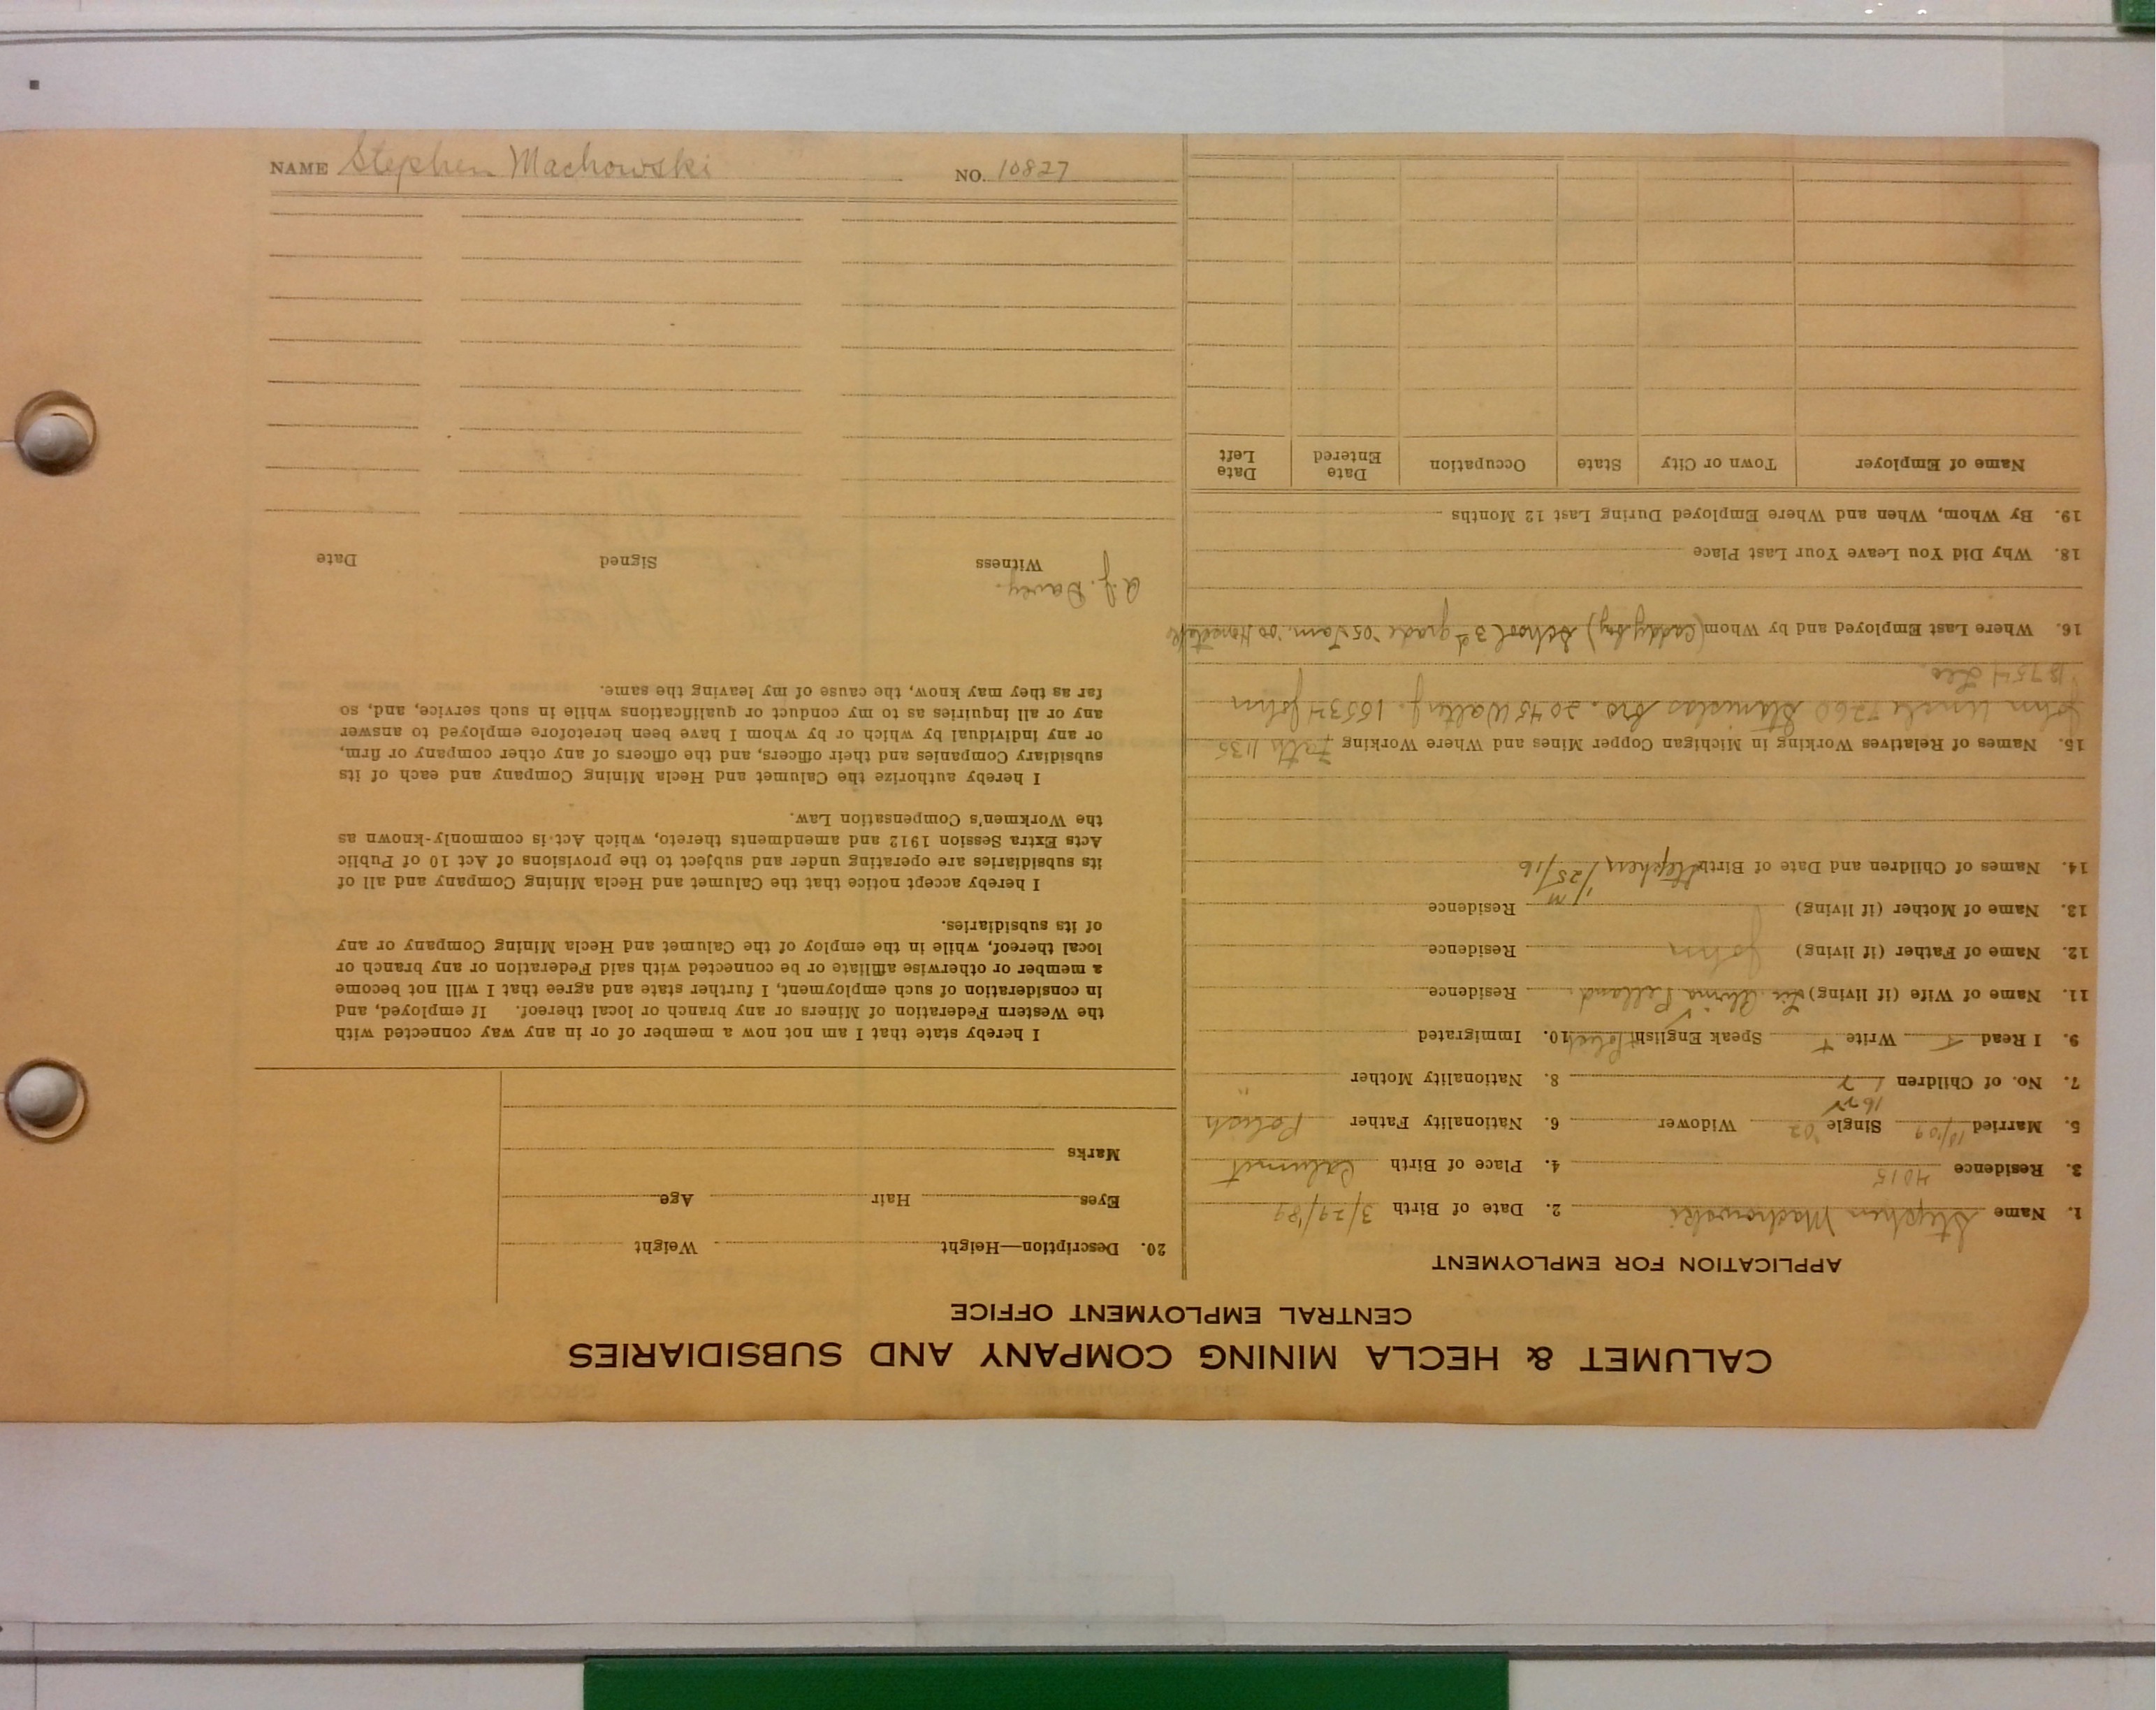 NAME Stephen Machowski NO. 10827
CALUMET & HECLA MINING COMPANY AND SUBSIDIARIES
CENTRAL EMPLOYMENT OFFICE
APPLICATION FOR EMPLOYMENT
1. Name Stephen Machowski 2. Date of Birth 3/29/'89
3. Residence 4015 4. Place of Birth Calumet
5. Married 10/'09 Single '02 Widower 6. Nationality Father Polish
7. No. of Children 8. Nationality Mother "
9. I Read + Write + Speak English + Polish 10. Immigrated
11. Name of Wife (if living) Residence
12. Name of Father (if living) John Residence
13. Name of Mother (if living) Residence
14. Names of Children and Date of Birth Stephen 1/25/16
15. Names of Relatives Working in Michigan Copper Mines and Where Working Fath 1135
John Uncle 7260 Stanislas bro. 2045 Walter J. 16534 John
18754 Leo.
16. Where Last Employed and by Whom (Caddy boy) School 3d grade '05 Tam.
18. Why Did You Leave Your Last Place
19. By Whom, When and Where Employed During Last 12 Months
Name of Employer Town or City State Occupation Date Entered Date Left
20. Description—Height Weight
Eyes Hair Age
Marks
I hereby state that I am not now a member of or in any way connected with
the Western Federation of Miners or any branch or local thereof. If employed, and
in consideration of such employment, I further state and agree that I will not become
a member or otherwise affiliate or be connected with said Federation or any branch or
local thereof, while in the employ of the Calumet and Hecla Mining Company or any
of its subsidiaries.
I hereby accept notice that the Calumet and Hecla Mining Company and all of
its subsidiaries are operating under and subject to the provisions of Act 10 of Public
Acts Extra Session 1912 and amendments thereto, which Act is commonly-known as
the Workmen's Compensation Law.
I hereby authorize the Calumet and Hecla Mining Company and each of its
subsidiary Companies and their officers, and the officers of any other company or firm,
or any individual by which or by whom I have been heretofore employed to answer
any or all inquiries as to my conduct or qualifications while in such service, and, so
far as they may know, the cause of my leaving the same.
A. J. Davey.
Witness Signed Date